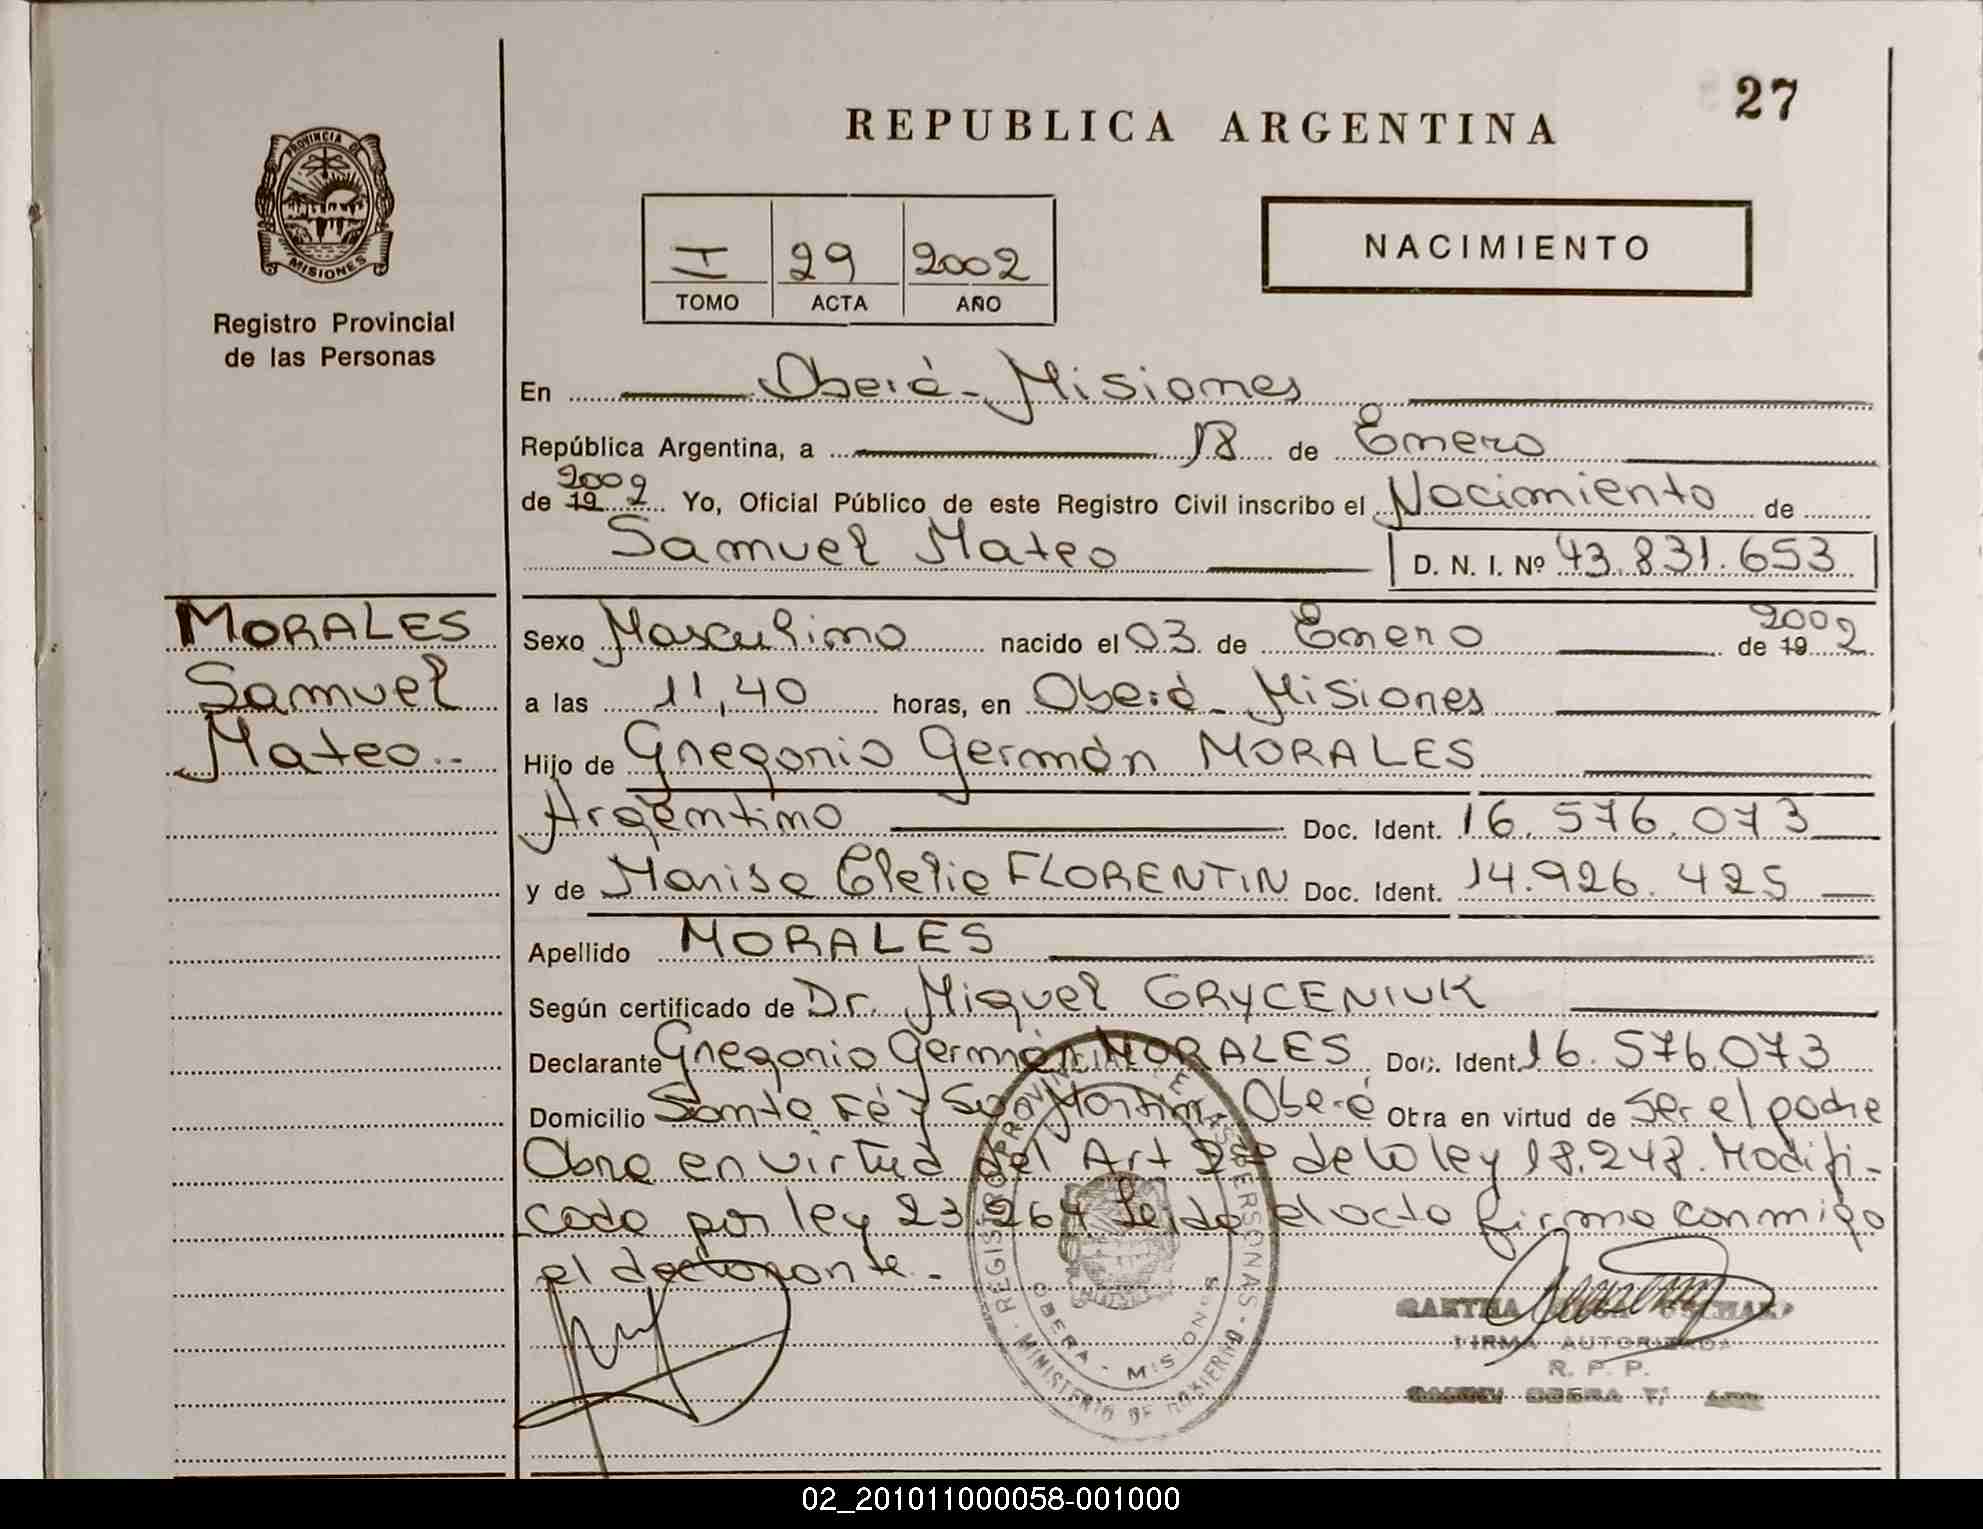 27
REPUBLICA ARGENTINA
PROVINCIA DE
MISIONES
Registro Provincial
de las Personas
I 29 2002
TOMO ACTA AÑO
NACIMIENTO
En Oberá - Misiones
República Argentina, a 18 de Enero
2002
de 19 2 Yo, Oficial Público de este Registro Civil inscribo el Nacimiento de
Samuel Mateo D. N. I. Nº 43.831.653
MORALES
Samuel
Mateo.-
Sexo Masculino nacido el 03 de Enero de 19 2002
a las 11,40 horas, en Oberá - Misiones
Hijo de Gregorio Germán MORALES
Argentino Doc. Ident. 16.576.073
y de Marisa Clelia FLORENTIN Doc. Ident. 14.926.425
Apellido MORALES
Según certificado de Dr. Miguel GRYCENIUK
Declarante Gregorio Germán MORALES Doc. Ident. 16.576.073
Domicilio Santa Fé y San Martin - Oberá Obra en virtud de Ser el padre
Obra en virtud del Art 2do de la ley 18.248. Modifi-
cada por ley 23.264. Leída el acta firma conmigo
el declarante.-
REGISTRO PROVINCIAL DE LAS PERSONAS - MINISTERIO DE GOBIERNO
OBERA - MISIONES
FIRMA AUTORIZADA
R. P. P.
02_201011000058-001000